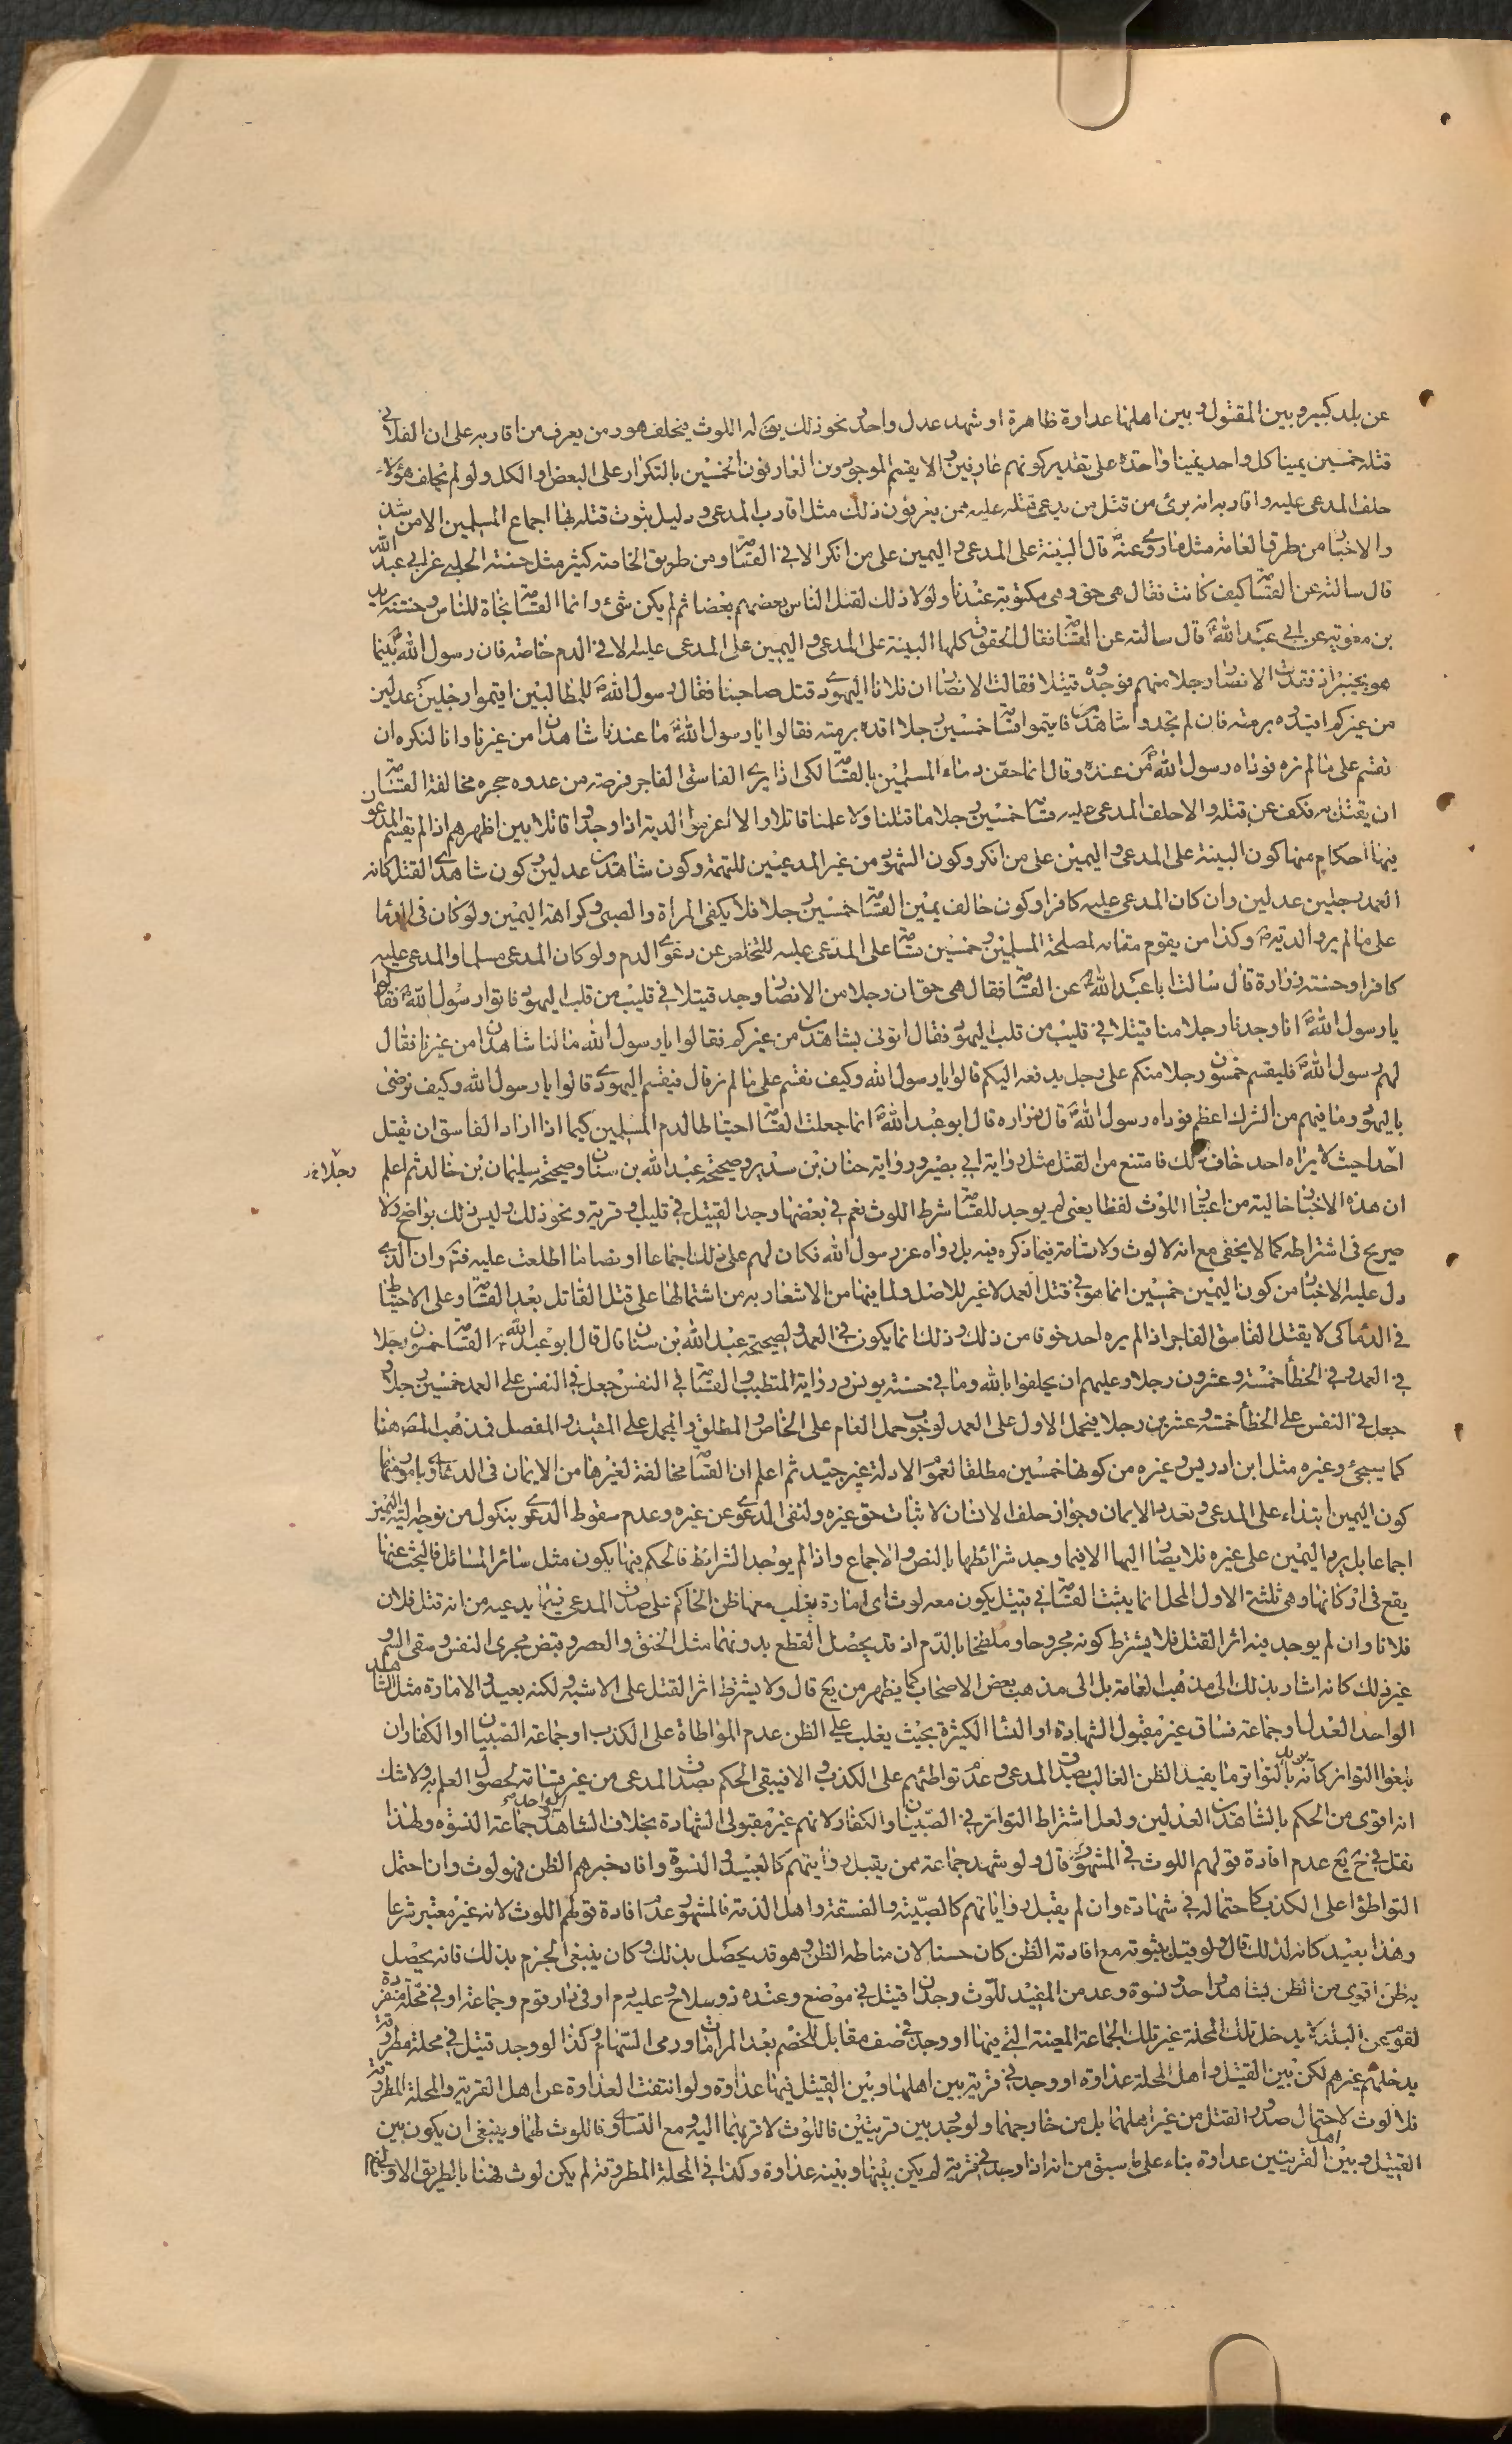 عن بلد كبير و بين المقتول و بين اهلها عداوة ظاهرة او شهد عدل واحد و نحو ذلك يق له اللوث فيحلف هو و من يعرف من اقاربه على ان الفلانى
قتله خمسين يمينا كل واحد يمينا واحدة على تقدير كونهم عارفين و الا يقسم الموجودون العارفون الخمسين بالتكرار على البعض او الكل و لو لم يحلف هؤلاء
حلف المدعى عليه و اقاربه انه برئ من قتل من يدعى قتله عليه ممن يعرفون ذلك مثل اقارب المدعى و دليل ثبوت قتله بها اجماع المسلمين الا من شذ
و الاخبار من طرق العامة مثل ما روى عنه ص قال البينة على المدعى و اليمين على من انكر الا فى القسامة و من طريق الخاصة كثير مثل حسنة الحلبى عن ابى عبد الله
قال سالته عن القسامة كيف كانت فقال هى حق و هى مكتوبة عندنا و لولا ذلك لقتل الناس بعضهم بعضا ثم لم يكن شئ و انما القسامة نجاة للناس و حسنة بريد
بن معوية عن ابى عبد الله قال سالته عن القسامة فقال الحقوق كلها البينة على المدعى و اليمين على المدعى عليه الا فى الدم خاصة فان رسول الله ص بينما
هو بخيبر اذ فقدت الانصار رجلا منهم فوجدوه قتيلا فقالت الانصار ان فلانا اليهودى قتل صاحبنا فقال رسول الله ص للطالبين اقيموا رجلين عدلين
من غيركم اقيده برمته فان لم تجدوا شاهدين فاقيموا قسامة خمسين رجلا اقده برمته فقالوا يا رسول الله ص ما عندنا شاهدان من غيرنا و انا لنكره ان
نقسم على ما لم نره فوداه رسول الله ص من عنده و قال انما حقن دماء المسلمين بالقسامة لكى اذا يرى الفاسق الفاجر فرصة من عدوه حجره مخافة القسامة
ان يقتل به فكف عن قتله و الا حلف المدعى عليه قسامة خمسين رجلا ما قتلنا و لا علمنا قاتلا و الا اغرموا الدية اذا وجدوا قاتلا بين اظهرهم اذا لم يقسم المدعون
فيها احكام منها كون البينة على المدعى و اليمين على من انكر و كون الشهود من غير المدعيين للتهمة و كون شاهدين عدلين و كون شاهدى القتل كانه
العمد رجلين عدلين و ان كان المدعى عليه كافرا و كون حالف يمين القسامة خمسين رجلا فلا يكفى المراة و الصبى و كراهة اليمين و لو كان فى الدماء
على ما لم ير و الدية و كذا من يقوم مقامه لمصلحة المسلمين و خمسين قسامة على المدعى عليه للتخلص عن دعوى الدم و لو كان المدعى مسلما و المدعى عليه
كافرا و حسنة زرارة قال سالت ابا عبد الله عن القسامة فقال هى حق ان رجلا من الانصار وجد قتيلا فى قليب من قلب اليهود فاتوا رسول الله ص فقالوا
يا رسول الله ص انا وجدنا رجلا منا قتيلا فى قليب من قلب اليهود فقال ائتونى بشاهدين من غيركم فقالوا يا رسول الله ما لنا شاهدان من غيرنا فقال
لهم رسول الله ص فليقسم خمسون رجلا منكم على رجل يدفعه اليكم قالوا يا رسول الله و كيف نقسم على ما لم نر قال فيقسم اليهود قالوا يا رسول الله و كيف نرضى
باليهود و ما فيهم من الشرك اعظم فوداه رسول الله ص قال زراره قال ابو عبد الله انما جعلت القسامة احتياطا لدم المسلمين كيما اذا اراد الفاسق ان يقتل
احدا حيث لا يراه احد خاف ذلك فامتنع من القتل مثل رواية ابى بصير و رواية حنان بن سدير و صحيحة عبد الله بن سنان و صحيحة سليمان بن خالد ثم اعلم
رجلا خ ر
ان هذه الاخبار خالية من اعتبار اللوث لفظا يعنى لم يوجد للقسامة شرط اللوث نعم فى بعضها وجد القتيل فى قليب او قرية و نحو ذلك و ليس ذلك بواضح و لا
صريح فى اشتراطه كما لا يخفى مع انه لا لوث و لا قسامة فيما ذكره فيه بل وداه عن رسول الله فكان لهم على ذلك اجماعا او نصا ما اطلعت عليه فتم و ان الذى
دل عليه الاخبار من كون اليمين خمسين انما هو فى قتل العمد لا غير للاصل و لما فيها من الاشعار به من اشتمالها على قتل القاتل بعد القسامة و على الاحتياط
فى الدماء كى لا يقتل الفاسق الفاجر اذا لم يره احد خوفا من ذلك و ذلك انما يكون فى العمد و لصحيحة عبد الله بن سنان قال قال ابو عبد الله ع القسامة خمسون رجلا
فى العمد و فى الخطأ خمسة و عشرون رجلا و عليهم ان يحلفوا بالله و ما فى حسنة يونس و رواية المتطبب و القسامة فى النفس جعل فى النفس على العمد خمسين رجلا و
جعل فى النفس على الخطأ خمسة و عشرين رجلا فيحمل الاول على العمد لوجوب حمل العام على الخاص و المطلق و المجمل على المقيد و المفصل فمذهب المصنف هنا
كما سيجئ و غيره مثل ابن ادريس و غيره من كونها خمسين مطلقا لعموم الادلة غير جيد ثم اعلم ان القسامة مخالفة لغيرها من الايمان فى الدعاوى بامور منها
كون اليمين ابتداء على المدعى و تعدد الايمان و جواز حلف الانسان لاثبات حق غيره و لنفى الدعوى عن غيره و عدم سقوط الدعوى بنكول من توجه اليه اليمين
اجماعا بل يرد اليمين على غيره فلا يصار اليها الا فيما وجد شرائطها بالنص و الاجماع و اذا لم يوجد الشرائط فالحكم فيها يكون مثل سائر المسائل فالبحث عنها
يقع فى اركانها و هى ثلثة الاول المحل انما يثبت القسامة فى قتيل يكون معه لوث اى امارة يغلب معها ظن الحاكم على صدق المدعى فيما يدعيه من انه قتل فلان
فلانا و ان لم يوجد فيه اثر القتل فلا يشترط كونه مجروحا و ملطخا بالدم اذ قد يحصل القطع بدونهما مثل الخنق و العصر و قبض مجرى النفس و سقى السم و
غير ذلك كانه اشار بذلك الى مذهب العامة بل الى مذهب بعض الاصحاب كما يظهر من يع قال و لا يشترط اثر القتل على الاشبه و لكنه بعيد و الامارة مثل الشاهد
الواحد العدل او جماعة فساق غير مقبول الشهادة او النساء الكثيرة بحيث يغلب على الظن عدم المواطاة على الكذب او جماعة الصبيان او الكفار ان
بلغوا التواتر كانه يريد بالتواتر ما يفيد الظن الغالب بصدق المدعى و عدم تواطئهم على الكذب و الا فيبقى الحكم بصدق المدعى من غير قسامة لحصول العلم به و لا شك
انه اقوى من الحكم بالشاهدين العدلين و لعل اشتراط التواتر فى الصبيان و الكفار لانهم غير مقبولى الشهادة بخلاف الشاهد الواحد و جماعة النسوة و لهذا
نقل فى ح يع عدم افادة قولهم اللوث فى المشهور قال و لو شهد جماعة ممن يقبل روايتهم كالعبيد و النسوة و افاد خبرهم الظن فهو لوث و ان احتمل
التواطؤ على الكذب كاحتماله فى شهادة و ان لم يقبل رواياتهم كالصبية و الفسقة و اهل الذمة فالمشهور عدم افادة قولهم اللوث لانه غير معتبر شرعا
و هذا بعيد كانه لذلك قال و لو قيل بثبوته مع افادته الظن كان حسنا لان مناطه الظن و هو قد يحصل بذلك و كان ينبغى الجزم بذلك فانه يحصل
به ظن اقوى من الظن بشاهد واحد و نسوة و عد من المفيد للوث وجدان قتيل فى موضع و عنده ذو سلاح و عليه دم او فى دار قوم و جماعة او فى محلة منفردة
لقوم عن البلد لا يدخل تلك المحلة غير تلك الجماعة المعينة التى فيها او وجد فى صف مقابل للخصم بعد المراماة و رمى السهام و كذا لو وجد قتيل فى محلة مطروقة
يدخلهم غيرهم لكن بين القتيل و اهل المحلة عداوة او وجد فى قرية بين اهلها و بين القتيل فيها عداوة و لو انتفت العداوة عن اهل القرية و المحلة المطروقة
فلا لوث لاحتمال صدور القتل من غير اهلهما بل من خارجهما و لو وجد بين قريتين فاللوث لاقربهما اليه و مع التساوى فاللوث لهما و ينبغى ان يكون بين
القتيل و بين اهل القريتين عداوة بناء على ما سبق من انه اذا وجد فى قرية لم يكن بينها و بينه عداوة و كذا فى المحلة المطروقة لم يكن لوث فهنا بالطريق الاولى